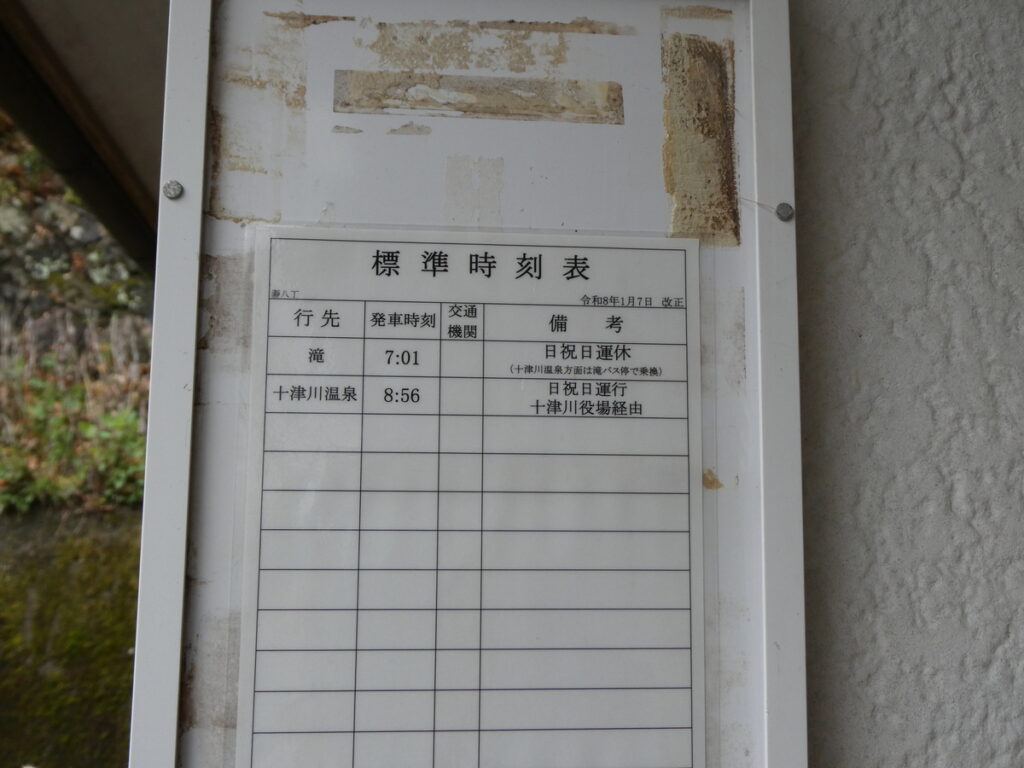 標準時刻表
令和8年1月7日 改正
行先 発車時刻 交通機関 備考
滝 7:01 日祝日運休
(十津川温泉方面は滝バス停で乗換)
十津川温泉 8:56 日祝日運行
十津川役場経由